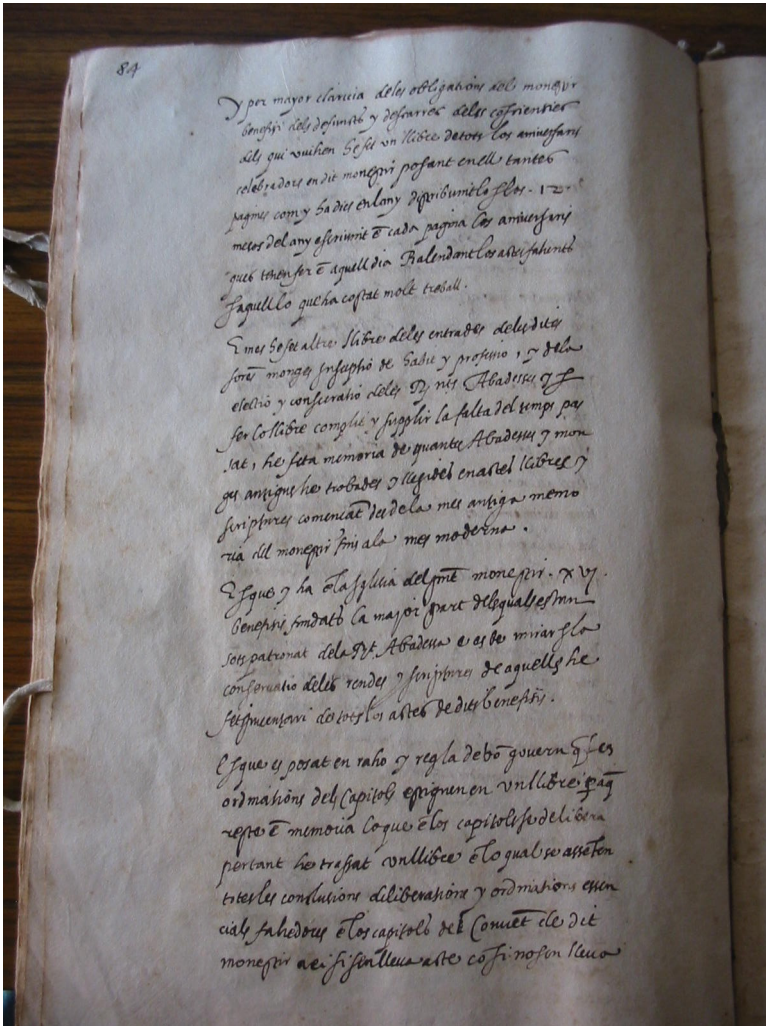 84
Y per mayor claricia deles obligations del monestir
benefisi dels defunts y descarrec deles cõsienties
dels qui vuihen he fet un llibre de tots los aniversaris
celebradors en dit monestir posant en ell tantes
pagines com y ha dies en lany distribuintlos p los .12.
mesos del any escriuint ẽ cada pagina los aniversaris
ques tenen fer ẽ aquell dia Kalendant los actes fahents
p aquell lo que ha costat molt treball.
E mes he fet altre llibre deles entrades deles dites
sors monges suseptio de habit y professio, y dela
electio y conseratio deles Rnts Abadesses y p
fer lo llibre complit y supplir la falta del temps pas
sat, he feta memoria de quantes Abadesses y mon
ges antigues he trobades y llegides en actes llibres y
scriptures comensãt des de la mes antiga memo
ria del monestir fins ala mes moderna.
E p que y ha ẽ la sglesia del pnt monestir .xvj.
benefisis fundats la major part dels quals estan
sots patronat dela Rt Abadessa e es be mirar p la
conservatio deles rendes y scriptures de aquells he
fet jnuentari de tots los actes de dits benefisis.
E p que es posat en raho y regla de bõ govern q les
ordinations dels Capitols estiguen en un llibre
reste ẽ memoria lo que ẽ los capitols se delibera
pertant he trassat un llibre ẽ lo qual se assẽten
totes les conclusions deliberations y ordinations essen
cials fahedores ẽ los capitols del Convẽt de dit
monestir axi si sen lleva acte co si no sen lleva